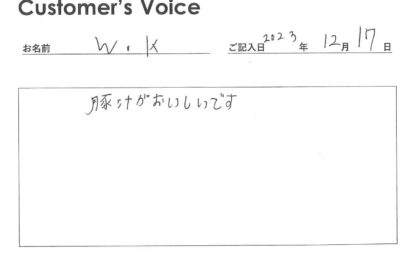 Customer's Voice
お名前 W.K ご記入日 2023年 12月 17日
豚汁がおいしいです